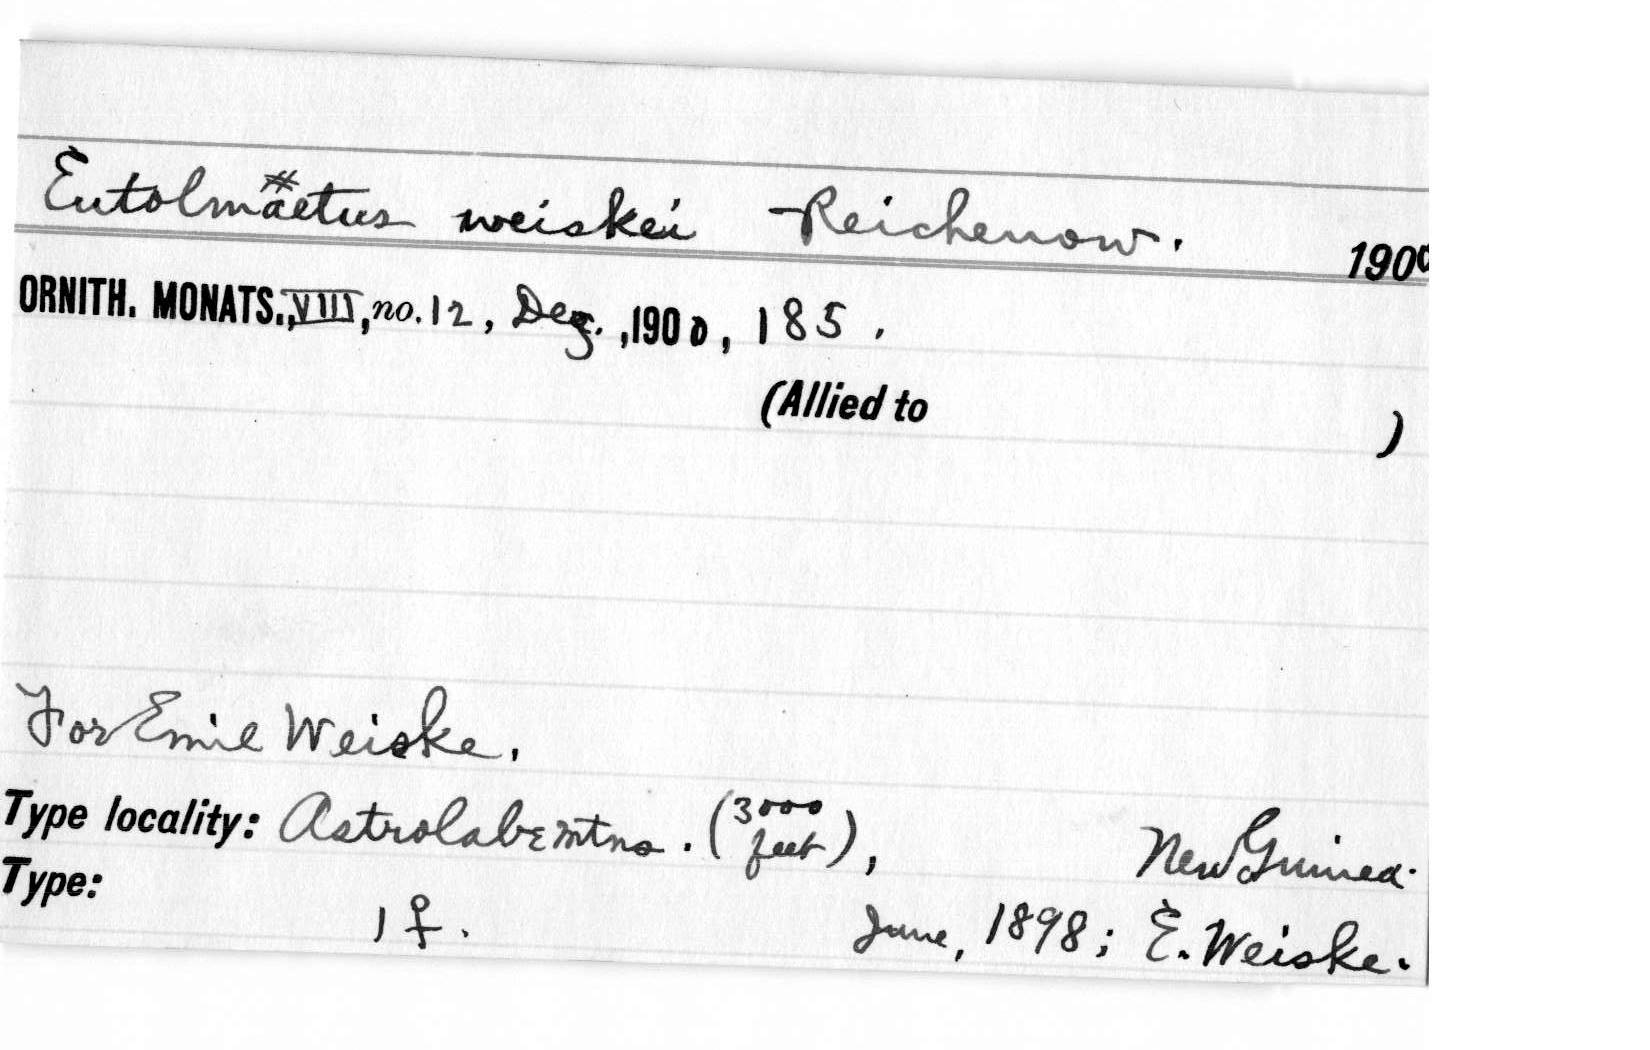 Eutolmäetus weiskei Reichenow. 1900
ORNITH. MONATS., VIII, no. 12, Dez., 1900, 185.
(Allied to )
For Emil Weiske.
Type locality: Astrolabe mtns. (3000 feet), New Guinea.
Type: 1 ♀. June, 1898; E. Weiske.